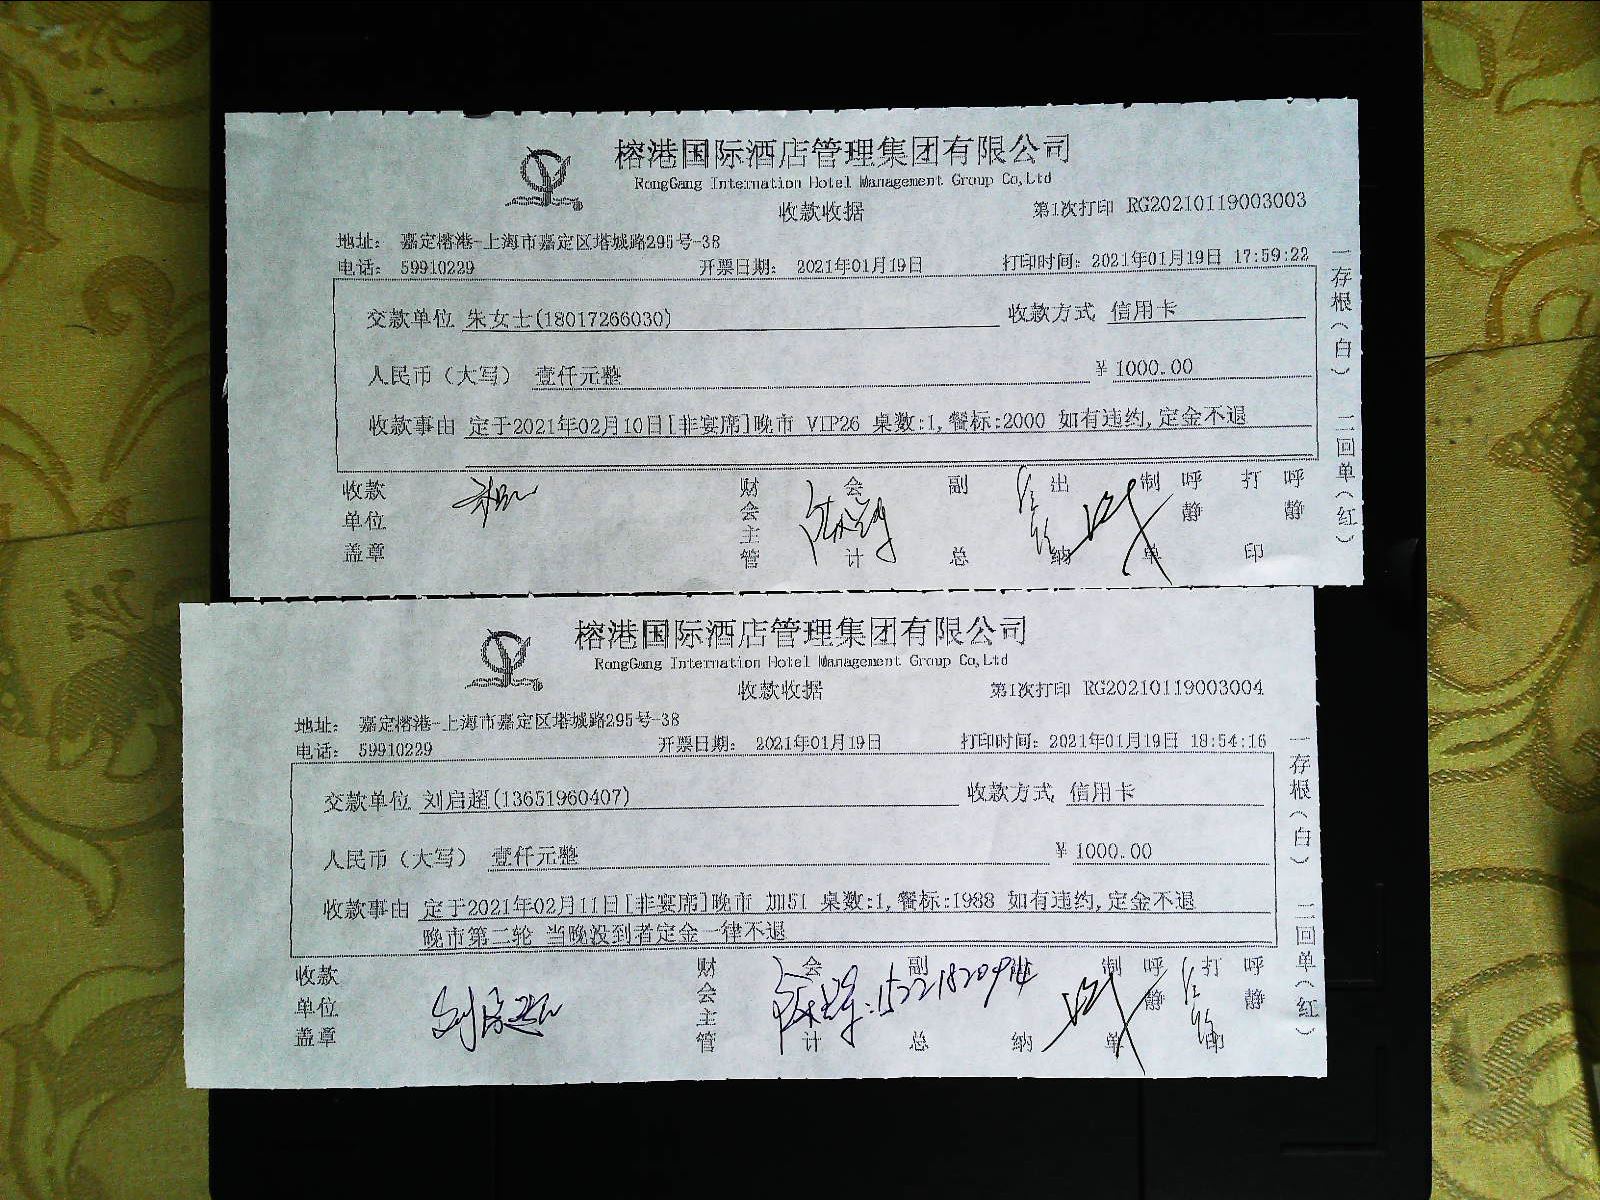 榕港国际酒店管理集团有限公司
RongGang Internation Hotel Management Group Co,Ltd
收款收据
第1次打印 RG20210119003003
地址: 嘉定榕港-上海市嘉定区塔城路295号-38
电话: 59910229 开票日期: 2021年01月19日 打印时间: 2021年01月19日 17:59:22
交款单位 朱女士(18017266030) 收款方式 信用卡
人民币（大写） 壹仟元整 ¥ 1000.00
收款事由 定于2021年02月10日[非宴席]晚市 VIP26 桌数:1,餐标:2000 如有违约,定金不退
收款单位盖章 财会主管 会计 副总 出纳 制单 呼静 打印 呼静
一存根（白） 二回单（红）
榕港国际酒店管理集团有限公司
RongGang Internation Hotel Management Group Co,Ltd
收款收据
第1次打印 RG20210119003004
地址: 嘉定榕港-上海市嘉定区塔城路295号-38
电话: 59910229 开票日期: 2021年01月19日 打印时间: 2021年01月19日 18:54:16
交款单位 刘启超(13651960407) 收款方式 信用卡
人民币（大写） 壹仟元整 ¥ 1000.00
收款事由 定于2021年02月11日[非宴席]晚市 加51 桌数:1,餐标:1988 如有违约,定金不退
晚市第二轮 当晚没到者定金一律不退
收款单位盖章 刘启超 财会主管 会计 副总 出纳 制单 呼静 打印 呼静
一存根（白） 二回单（红）